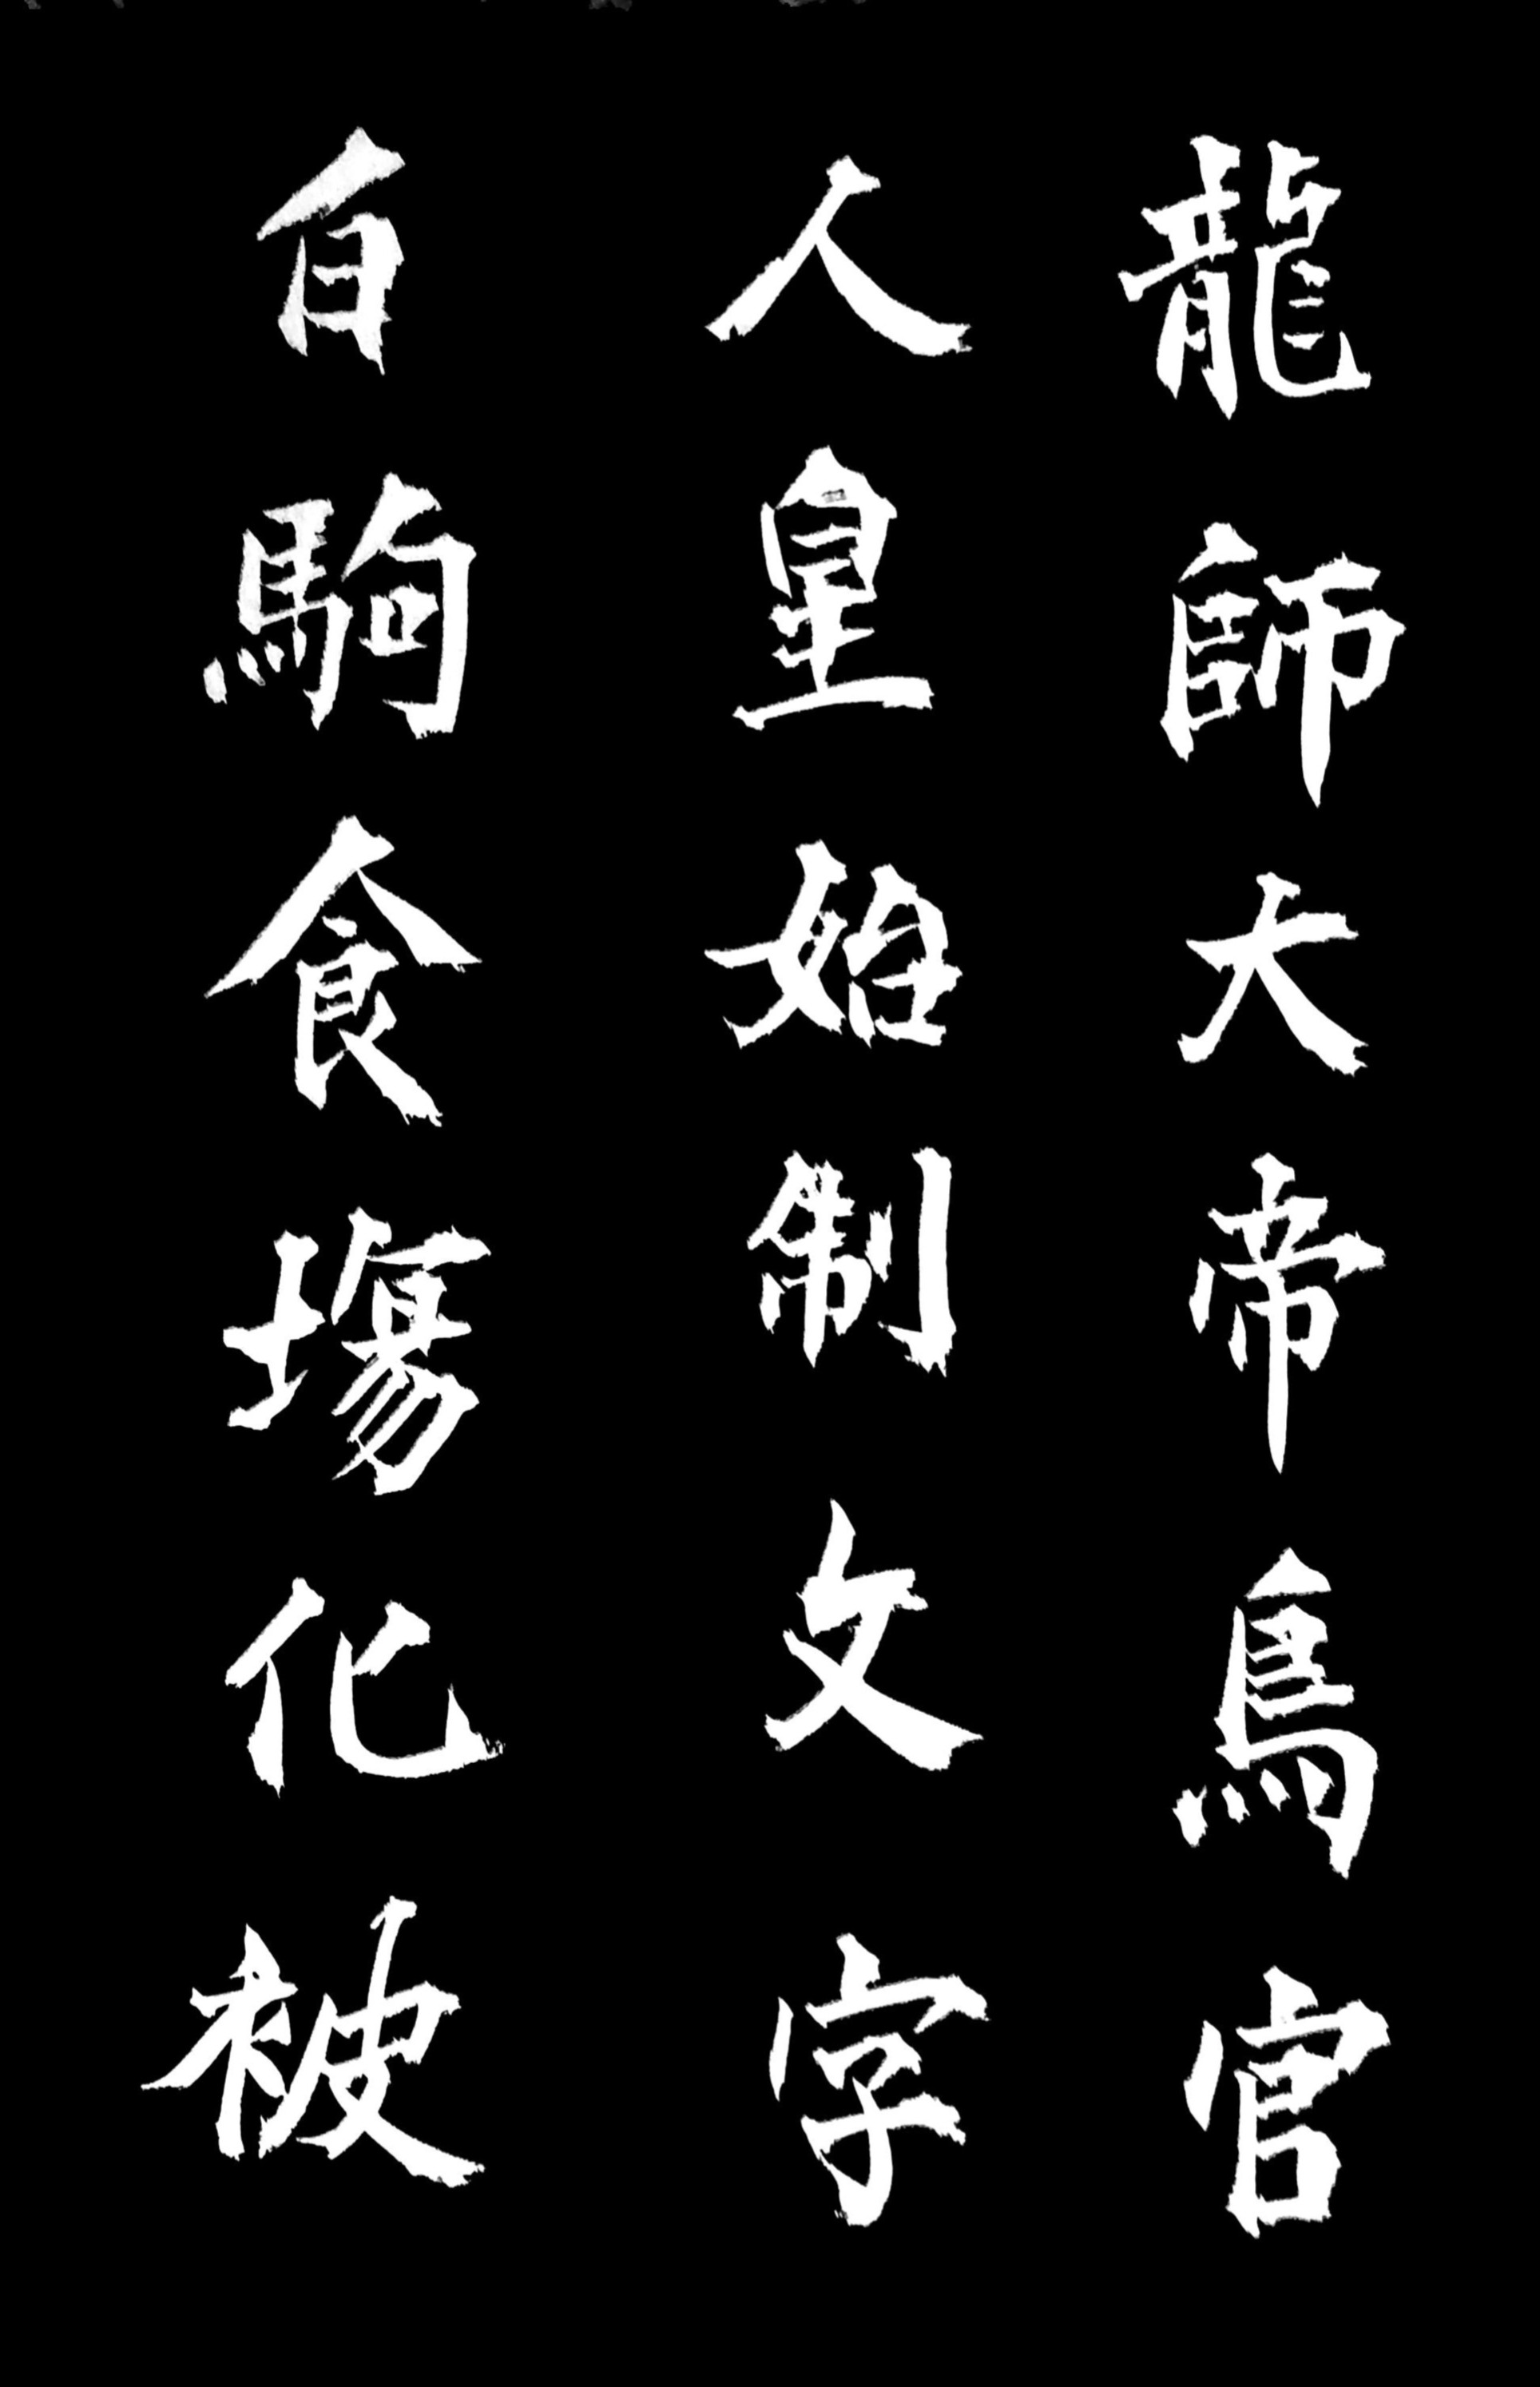 龍師大帝鳥官
人皇始制文字
白駒食場化被